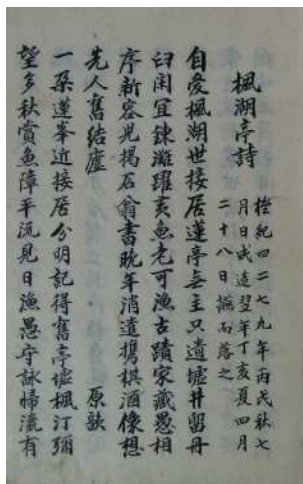 楓湖亭詩
檀紀四二七九年丙戌秋七
月日武造翌年丁亥夏四月
二十八日讌而落之
自爱楓湖世接居蓮亭無主只遺墟井留丹
臼閑宜鍊灘躍亥魚老可漁古蹟家藏愚相
序新容光揭石翁書晩年消遣携棋酒像想
先人舊結廬 原韻
一朶蓮峯近接居分明記得舊亭墟楓汀彌
望多秋賞魚障平流見日漁愚守詠帰瀛有